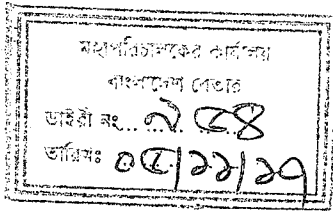 মহাপরিচালকের কার্যালয়
বাংলাদেশ বেতার
ডাইরী নং... ৯৫৪
তারিখঃ ০৫/১১/১৭